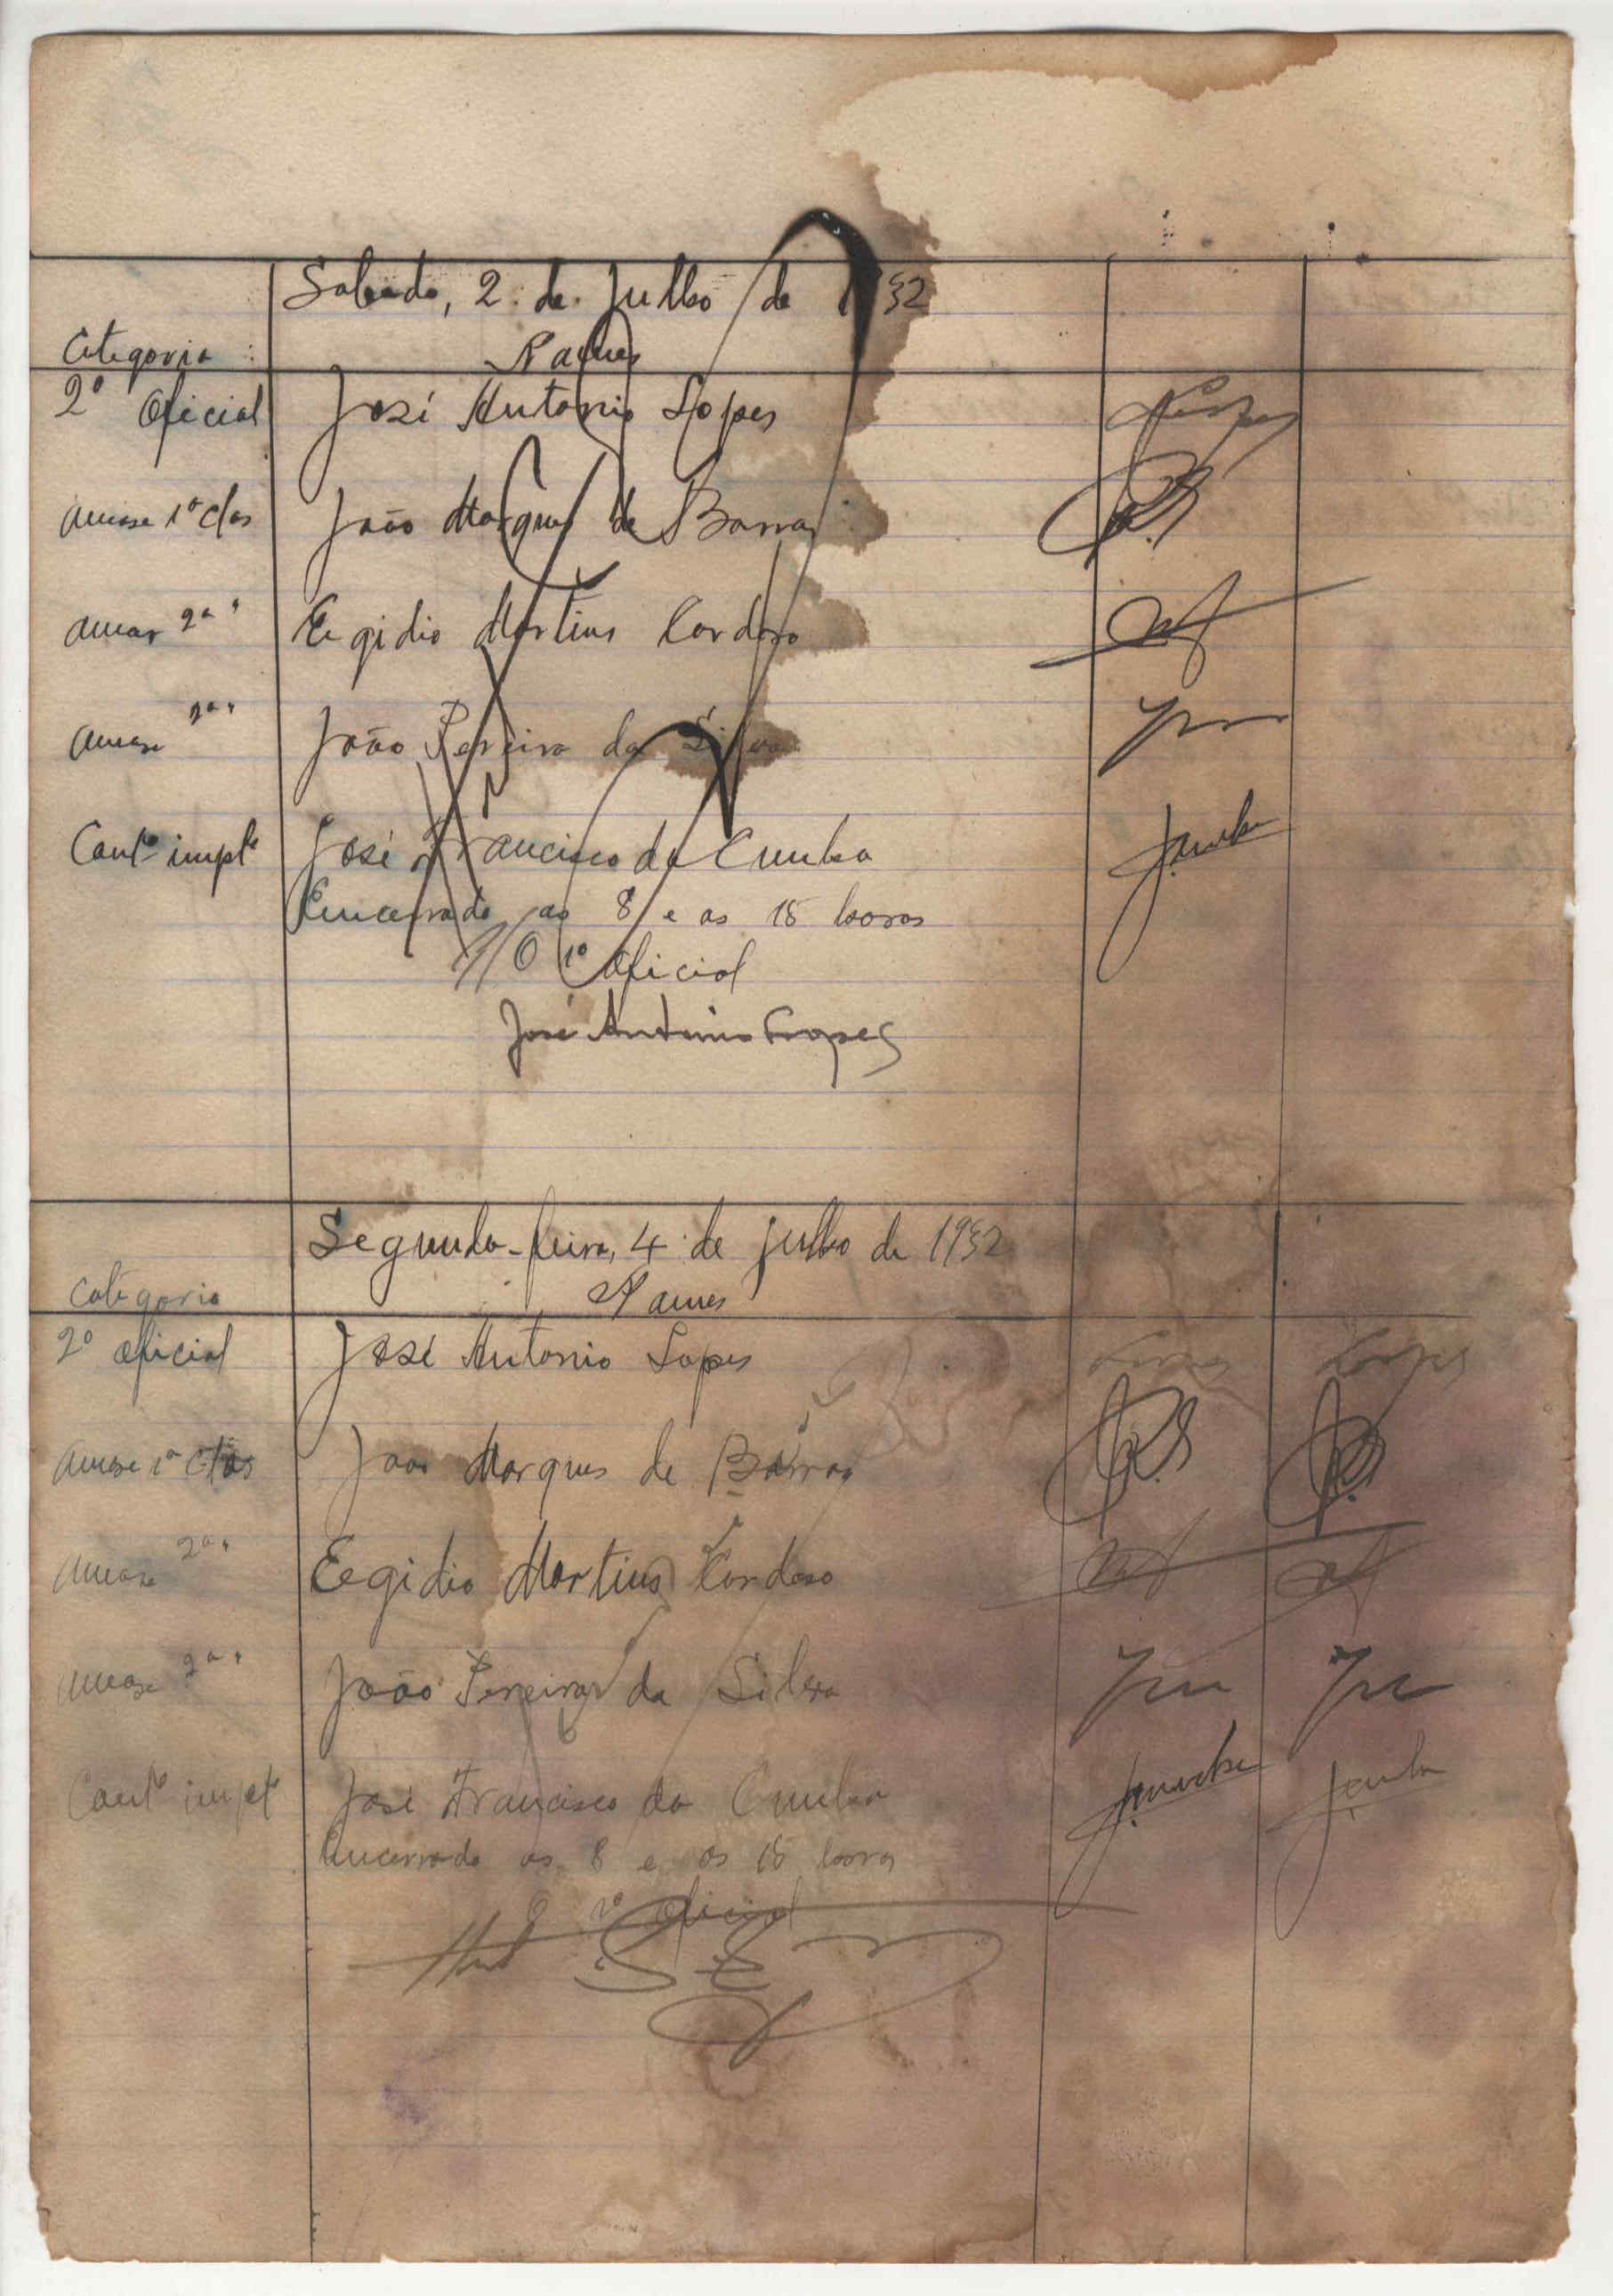 Sabado, 2 de Julho de 1932
Categoria Nomes
2º Oficial José Antonio Lopes Lopes
1ª clas João Marques de Barros
2ª " Egidio Martins Cardoso
2ª " João Pereira da Silva
Cantº impte José Francisco da Cunha JCunha
Encerrado as 8 e as 15 horas
O 1º Oficial
José Antonio Lopes
Segunda-feira, 4 de julho de 1932
Categoria Nomes
2º Oficial José Antonio Lopes Lopes Lopes
1ª clas João Marques de Barros
2ª " Egidio Martins Cardoso
2ª " João Pereira da Silva
Cantº impte José Francisco da Cunha JCunha JCunha
Encerrado as 8 e as 15 horas
O 1º Oficial